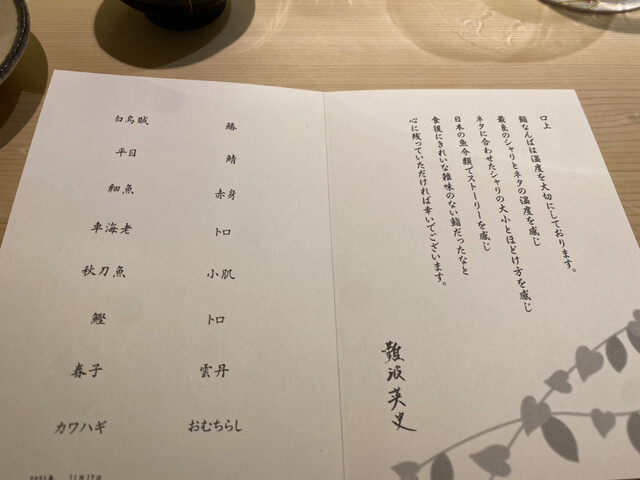 白烏賊
平目
細魚
車海老
秋刀魚
鰹
春子
カワハギ
鰆
鯖
赤身
トロ
小肌
トロ
雲丹
おむちらし
口上
鮨なんばは温度を大切にしております。
最良のシャリとネタの温度を感じ
ネタに合わせたシャリの大小とほどけ方を感じ
日本の魚介類でストーリーを感じ
食後にきれいな雑味のない鮨だったなと
心に残っていただければ幸いでございます。
難波英史